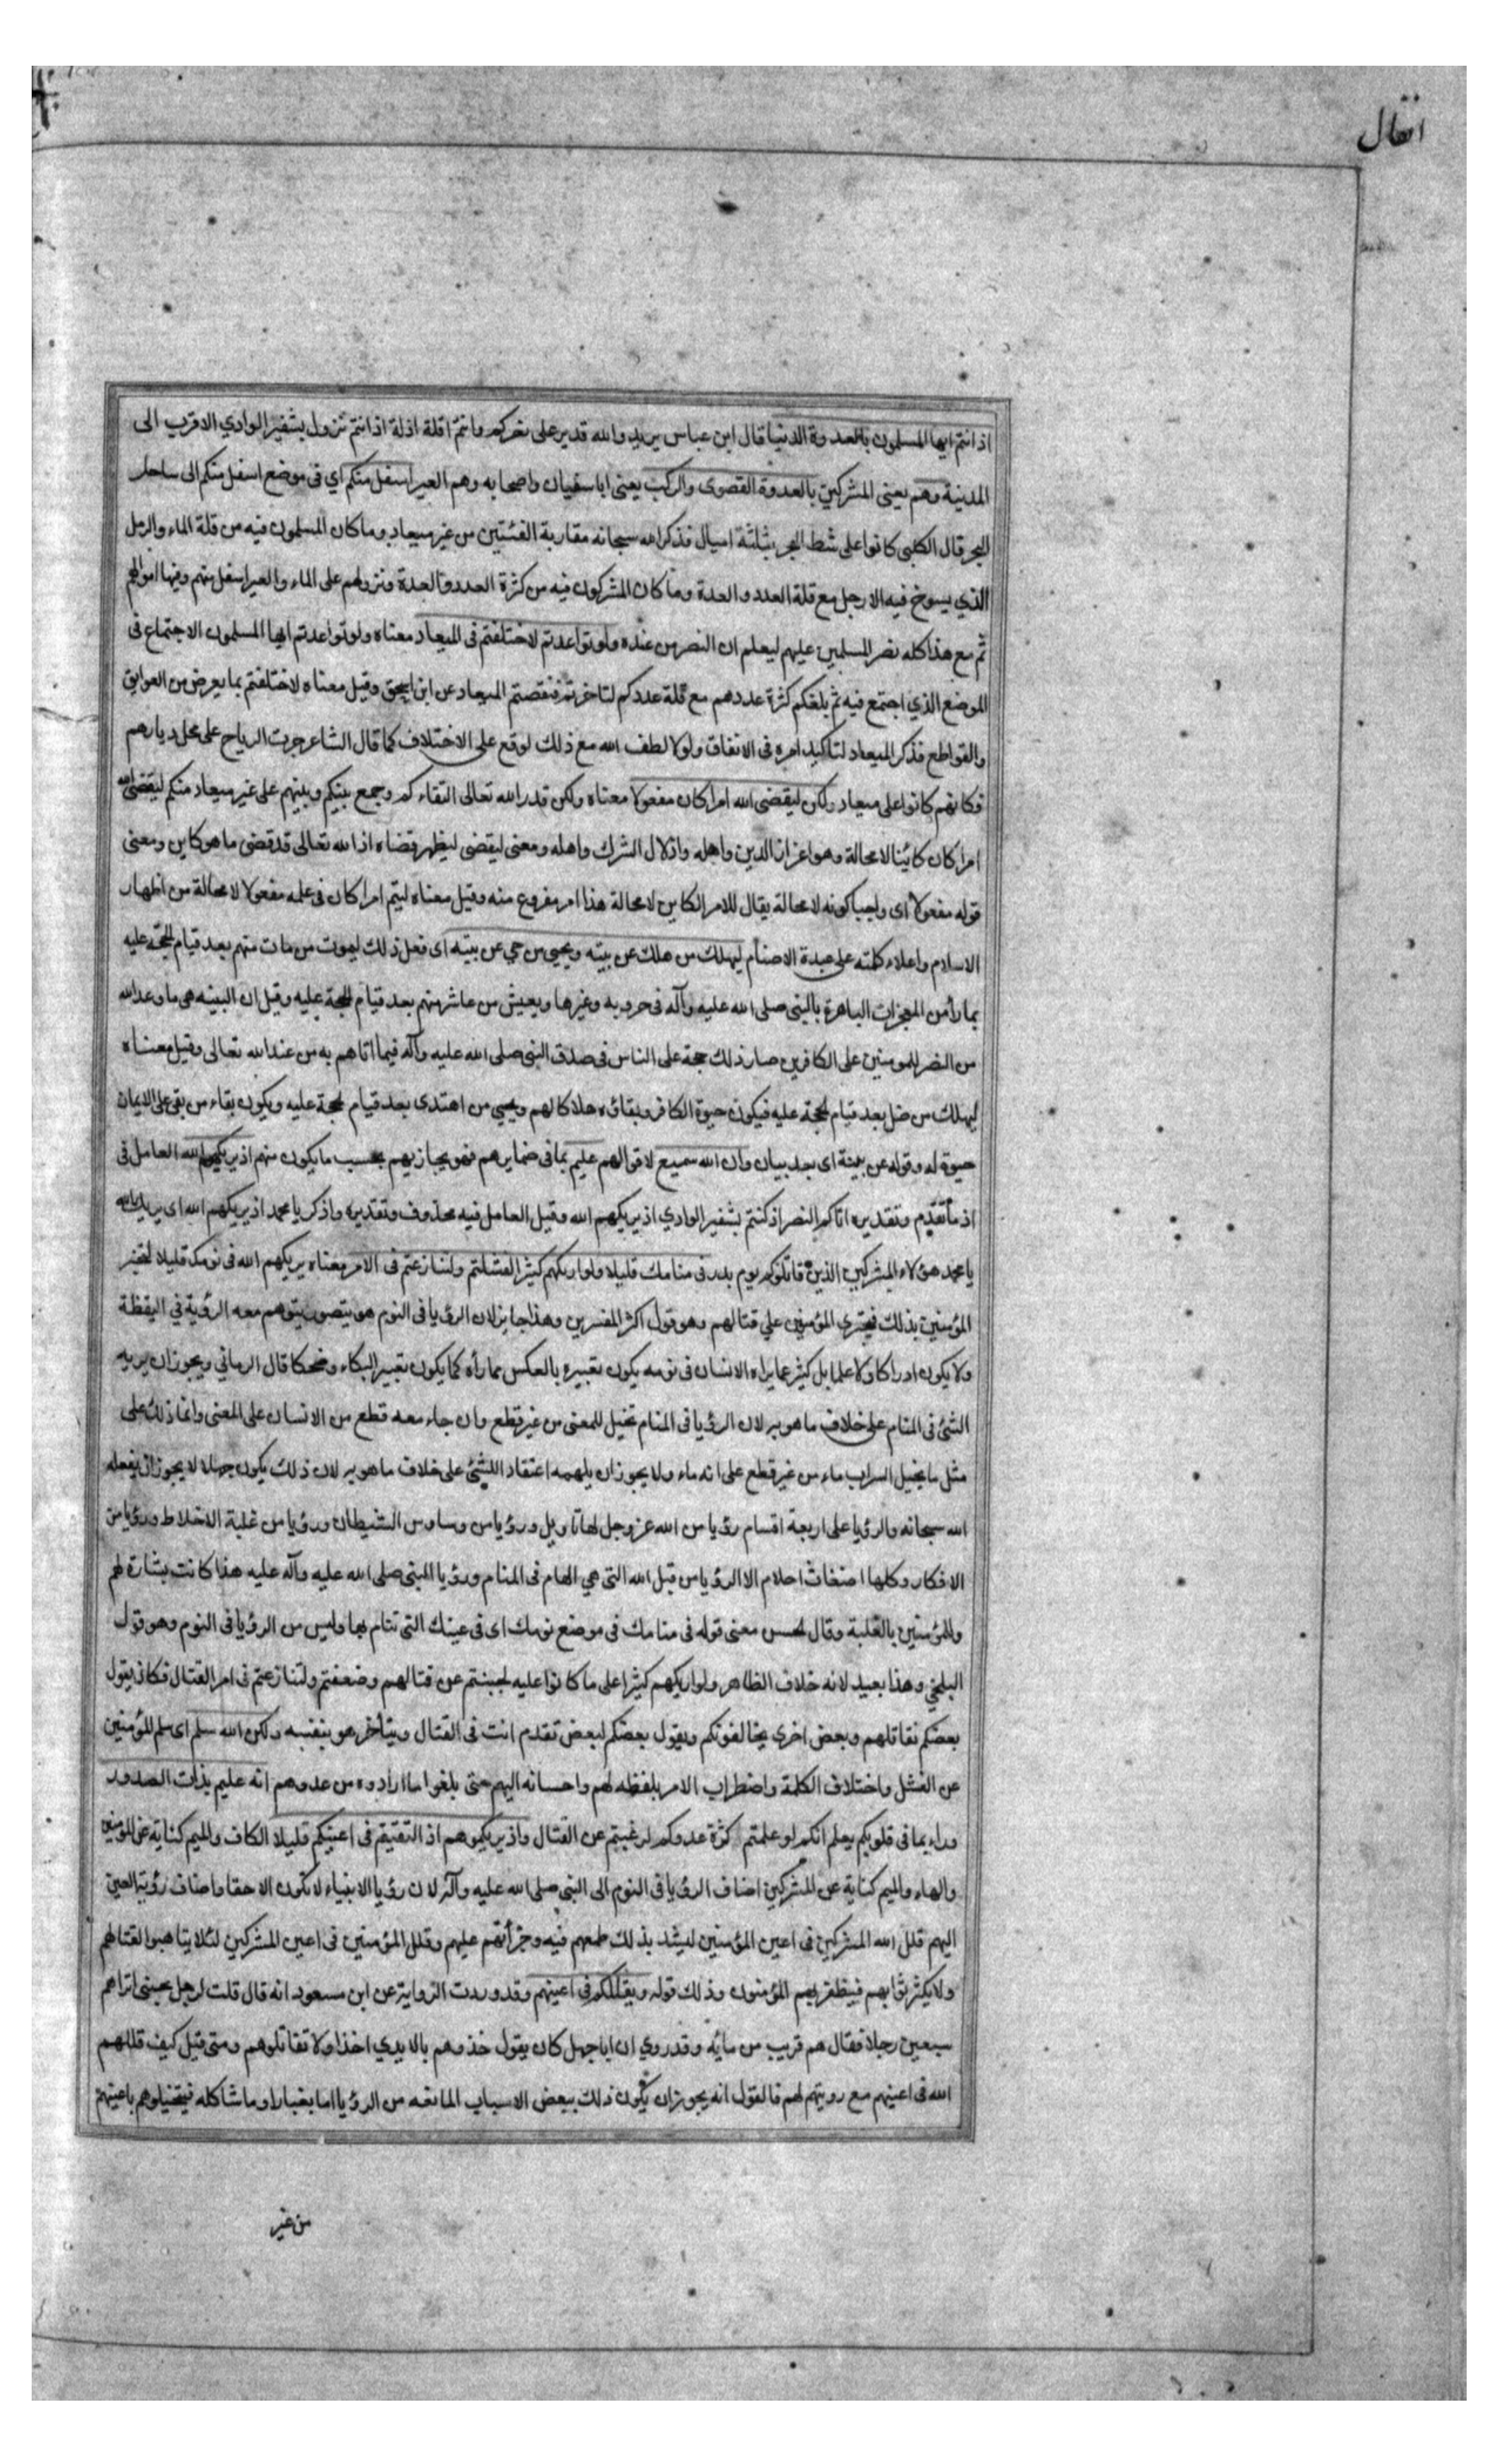 انفال
اذ انتم ايها المسلمون بالعدوة الدنيا قال ابن عباس يريد والله قدير على نصركم وانتم اقلة اذلة اذ انتم نزول بشفير الوادي الاقرب الى
المدينة وهم يعنى المشركين بالعدوة القصوى والركب يعنى ابا سفيان واصحابه وهم العير اسفل منكم اي فى موضع اسفل منكم الى ساحل
البحر قال الكلبى كانوا على شط البحر بثلثة اميال فذكر الله سبحانه مقاربة الفئتين من غير ميعاد وما كان المسلمون فيه من قلة الماء والرمل
الذي يسوخ فيه الارجل مع قلة العدد والعدة وما كان المشركون فيه من كثرة العدد والعدة ونزولهم على الماء والعير اسفل منهم وفيها اموالهم
ثم مع هذا كله نصر المسلمين عليهم ليعلم ان النصر من عنده ولو تواعدتم لاختلفتم فى الميعاد معناه ولو تواعدتم ايها المسلمون الاجتماع فى
الموضع الذي اجتمع فيه ثم بلغكم كثرة عددهم مع قلة عددكم لتاخرتم فنقصتم الميعاد عن ابن اسحق وقيل معناه لاختلفتم بما يعرض من العوايق
والقواطع فذكر الميعاد لتاكيد امره فى الاتفاق ولولا لطف الله مع ذلك لوقع على الاختلاف كما قال الشاعر جرت الرياح على محل ديارهم
فكانهم كانوا على ميعاد ولكن ليقضى الله امرا كان مفعولا معناه ولكن قدر الله تعالى التقاءكم وجمع بينكم وبينهم على غير ميعاد منكم ليقضى الله
امرا كان كائنا لا محالة وهو اعزاز الدين واهله واذلال الشرك واهله ومعنى ليقضى ليظهر قضاه اذ الله تعالى قد قضى ما هو كاين ومعنى
قوله مفعولا اى واجبا كونه لا محالة يقال للامر الكاين لا محالة هذا امر مفروغ منه وقيل معناه ليتم امرا كان فى علمه مفعولا لا محالة من اظهار
الاسلام واعلاء كلمته على عبدة الاصنام ليهلك من هلك عن بينه ويحيى من حي عن بينه اى فعل ذلك ليموت من مات منهم بعد قيام الحجة عليه
بما رأ من المعجزات الباهرة بالنبى صلى الله عليه وآله فى حروبه وغيرها ويعيش من عاش منهم بعد قيام الحجة عليه وقيل ان البينه هى ما وعد الله
من النصر للمومنين على الكافرين صار ذلك حجة على الناس فى صدق النبى صلى الله عليه وآله فيما اتاهم به من عند الله تعالى وقيل معناه
ليهلك من ضل بعد قيام الحجة عليه فيكون حيوة الكافر وبقاؤه هلاكا لهم ويحيى من اهتدى بعد قيام الحجة عليه ويكون بقاء من بقى على الايمان
حيوة له وقوله عن بينة اى بعد بيان وان الله سميع لاقوالهم عليم بما فى ضمايرهم فهو يجازيهم بحسب ما يكون منهم اذ يريكهم الله العامل فى
اذ ما تقدم وتقديره اتاكم النصر اذ كنتم بشفير الوادي اذ يريكهم الله وقيل العامل فيه محذوف وتقديره واذكر يا محمد اذ يريكهم الله اى يريك الله
يا محمد هؤلاء المشركين الذين قاتلوكم يوم بدر فى منامك قليلا ولو اريكهم كثيرا لفشلتم ولتنازعتم فى الامر معناه يريكهم الله فى نومك قليلا لتخبر
المؤمنين بذلك فيجترى المؤمنين علي قتالهم وهو قول اكثر المفسرين وهذا جايز لان الرؤيا فى النوم هو يتصور يتوهم معه الرؤية فى اليقظة
ولا يكون ادراكا ولا علما بل كثير مما يراه الانسان فى نومه يكون تعبيره بالعكس مما رأه كما يكون تعبير البكاء وضحكا قال الرماني ويجوز ان يريه
الشئ فى المنام على خلاف ما هو به لان الرؤيا فى المنام تخيل للمعنى من غير قطع وان جاء معه قطع من الانسان على المعنى وانما ذلك على
مثل ما يخيل السراب ماء من غير قطع على انه ماء ولا يجوز ان يلهمه اعتقاد الشئ على خلاف ما هو به لان ذلك يكون جهلا لا يجوز ان يفعله
الله سبحانه والرؤيا على اربعة اقسام رؤيا من الله عز وجل لها تاويل ورؤيا من وساوس الشيطان ورؤيا من غلبة الاخلاط ورؤيا من
الافكار وكلها اضغاث احلام الا الرؤيا من قبل الله التى هي الهام فى المنام ورؤيا النبى صلى الله عليه وآله عليه هذا كانت بشارة لهم
وللمؤمنين بالغلبة وقال الحسن معنى قوله فى منامك فى موضع نومك اى فى عينك التى تنام بها وليس من الرؤيا فى النوم وهو قول
البلخي وهذا بعيد لانه خلاف الظاهر ولو اريكهم كثيرا على ما كانوا عليه لجبنتم عن قتالهم وضعفتم ولتنازعتم فى امر القتال فكان يقول
بعضكم نقاتلهم وبعض اخرى يخالفونكم ويقول بعضكم لبعض تقدم انت فى القتال ويتأخر هو بنفسه ولكن الله سلم اى سلم المؤمنين
عن الفشل واختلاف الكلمة واضطراب الامر بلفظه لهم واحسانه اليهم حتى بلغوا ما ارادوه من عدوهم انه عليم بذات الصدور
وراء بما فى قلوبكم يعلم انكم لو علمتم كثرة عدوكم لرغبتم عن القتال واذ يريكموهم اذ التقيتم فى اعينكم قليلا الكاف والميم كناية عن المؤمنين
والهاء والميم كناية عن المشركين اضاف الرؤيا فى النوم الى النبى صلى الله عليه وآله لان رؤيا الانبياء لا تكون الا حقا واضاف رؤية العين
اليهم قلل الله المشركين فى اعين المؤمنين ليشد بذلك طمعهم فيه وجرأتهم عليهم وقلل المؤمنين فى اعين المشركين لئلا يتاهبوا لقتالهم
ولا يكثر ثابهم فيظفر بهم المؤمنون وذلك قوله ويقللكم فى اعينهم وقد وردت الرواية عن ابن مسعود انه قال قلت لرجل بجنبى اتراهم
سبعين رجلا فقال هم قريب من مايه وقد روي ان ابا جهل كان يقول خذوهم بالايدي اخذا ولا تقاتلوهم ومتى قيل كيف قللهم
الله فى اعينهم مع رويتهم لهم فالقول انه يجوز ان يكون ذلك ببعض الاسباب المانعه من الرؤيا اما بغبار او ما شاكله فيتخيلوهم باعينهم
من غير